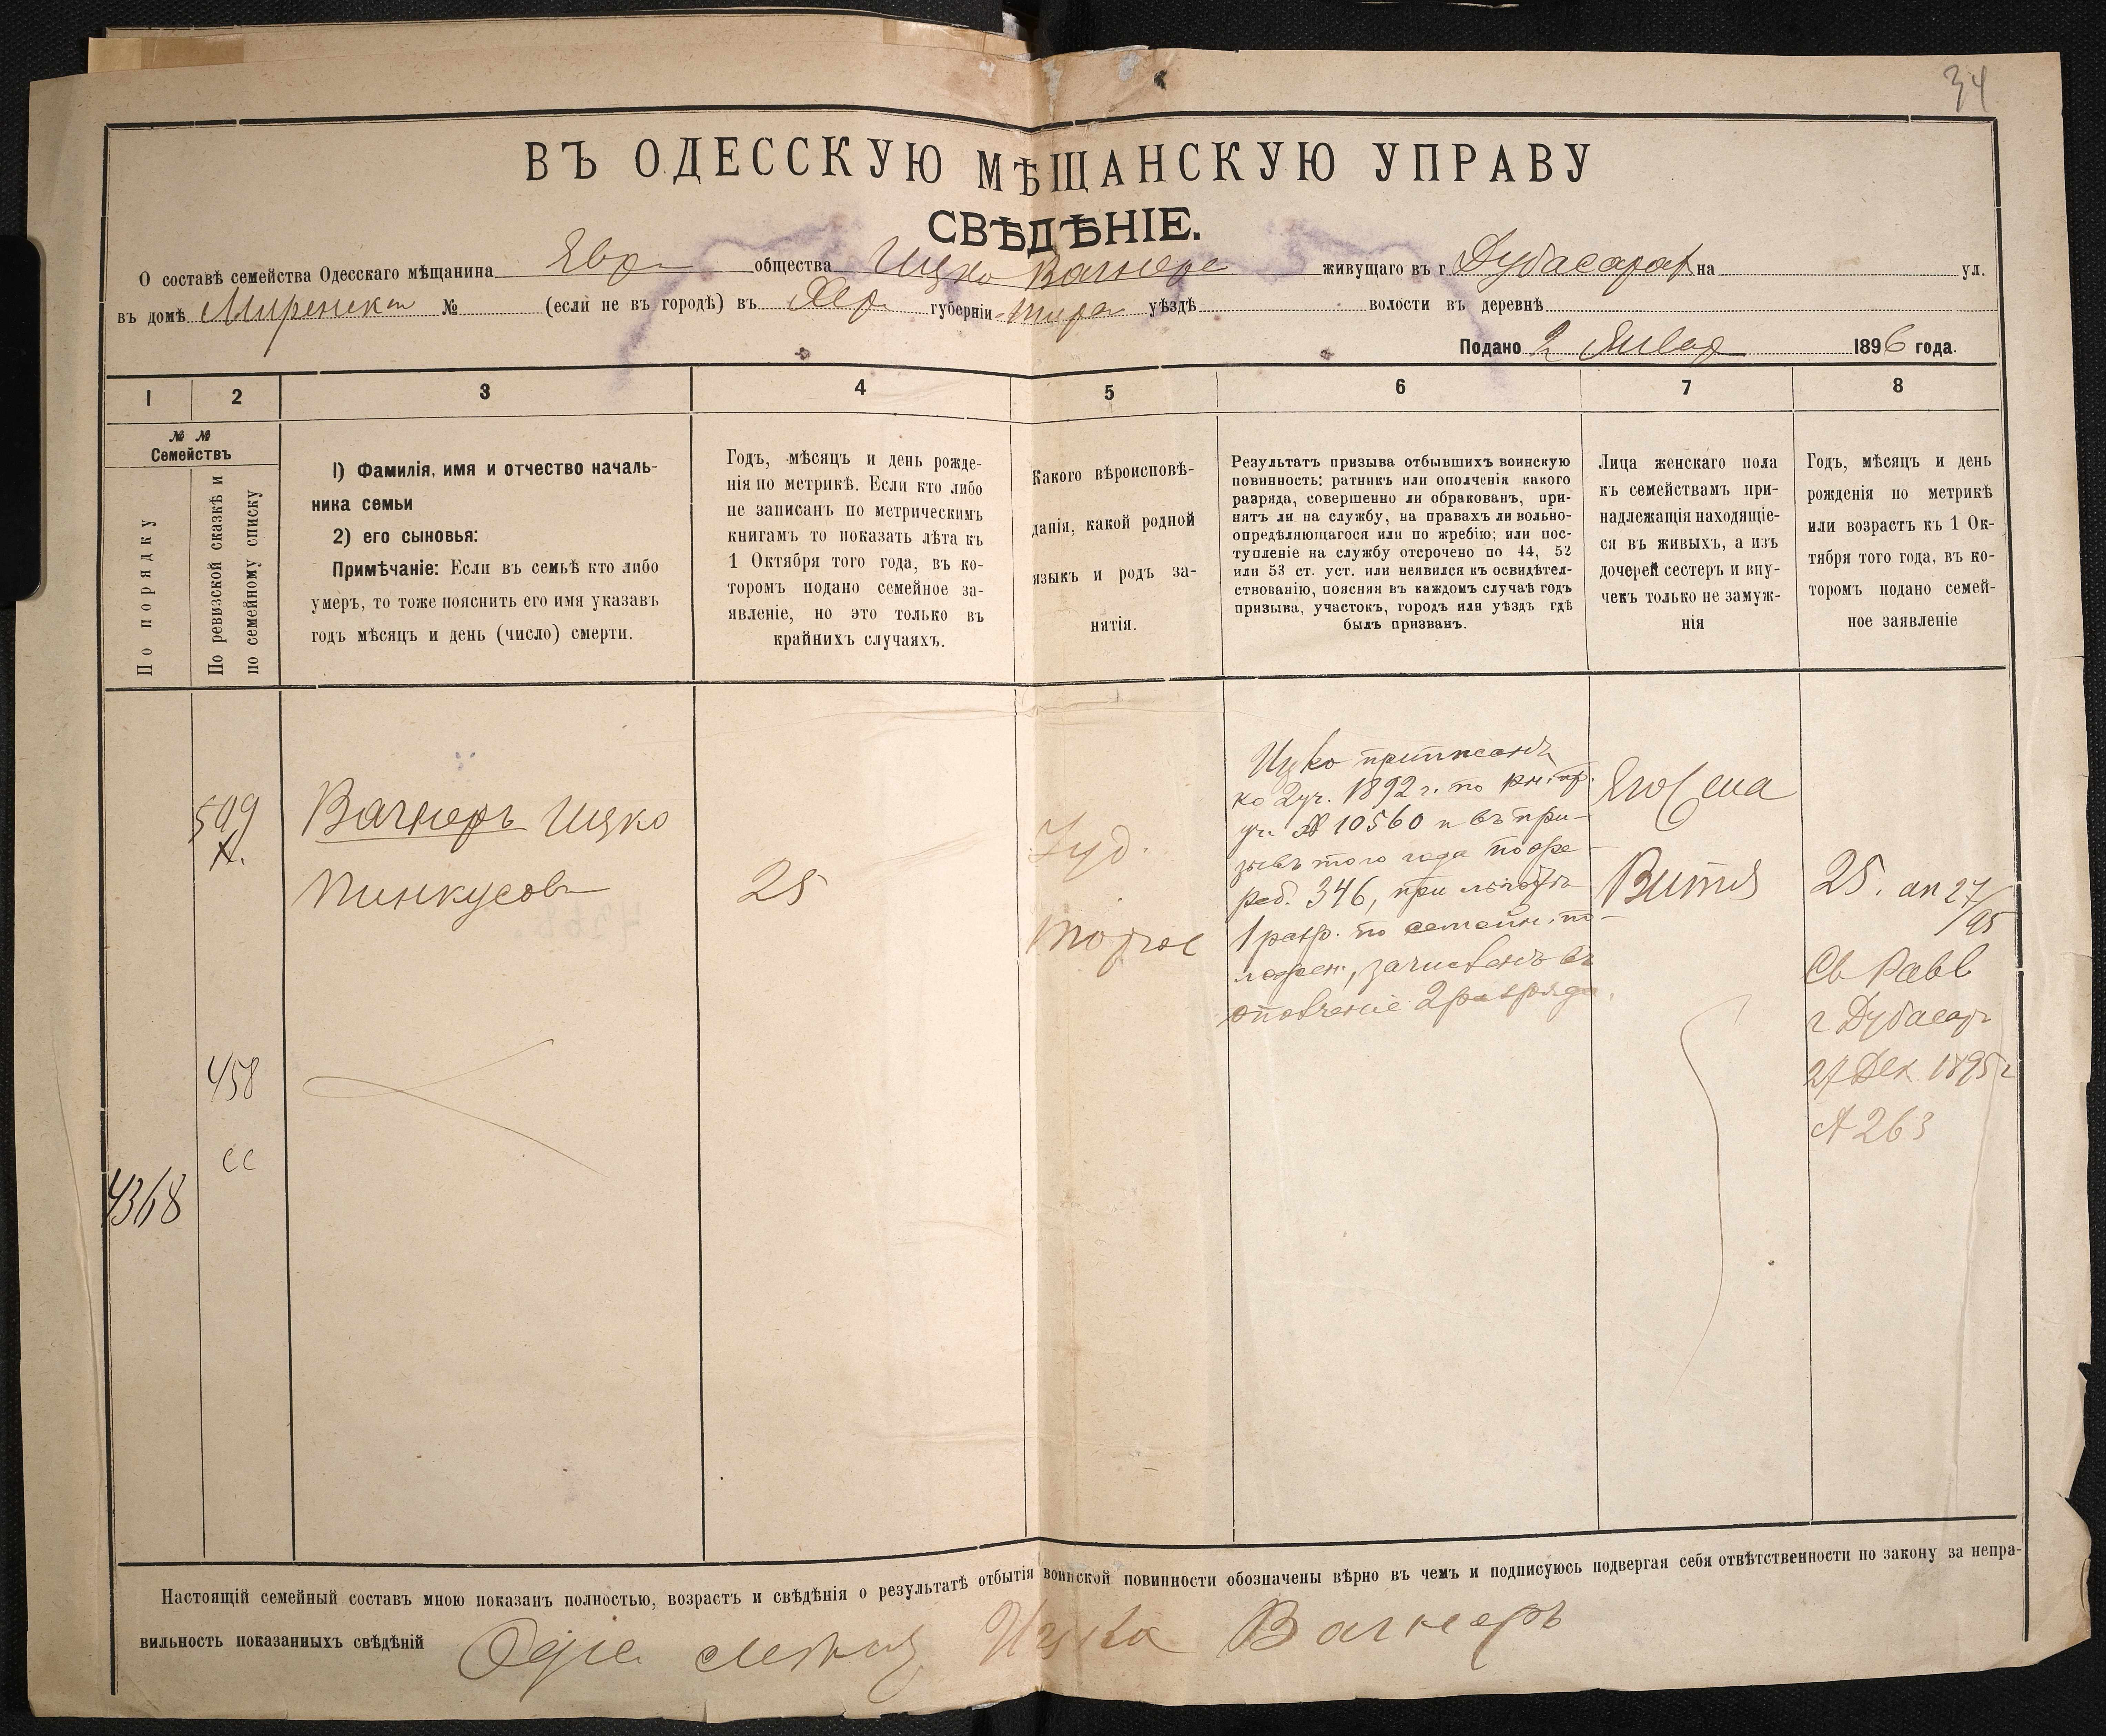 34
ВЪ ОДЕССКУЮ МѢЩАНСКУЮ УПРАВУ
СВѢДѢНІЕ.
О составѣ семейства Одесскаго мѣщанина Евр общества Ицко Вагнера живущаго въ г Дубасарах на ул.
въ домѣ № (если не въ городѣ) въ Хер губерніи Тира уѣздѣ волости въ деревнѣ
Подано 2 Январ 1896 года.
1 2 3 4 5 6 7 8
№ №
Семействъ
По порядку
По ревизской сказкѣ и
по семейному списку
1) Фамилія, имя и отчество началь-
ника семьи
2) его сыновья:
Примѣчаніе: Если въ семьѣ кто либо
умеръ, то тоже пояснить его имя указавъ
годъ мѣсяцъ и день (число) смерти.
Годъ, мѣсяцъ и день рожде-
нія по метрикѣ. Если кто либо
не записанъ по метрическимъ
книгамъ то показать лѣта къ
1 Октября того года, въ ко-
торомъ подано семейное за-
явленіе, но это только въ
крайнихъ случаяхъ.
Какого вѣроисповѣ-
данія, какой родной
языкъ и родъ за-
нятія.
Результатъ призыва отбывшихъ воинскую
повинность: ратникъ или ополченія какого
разряда, совершенно ли обракованъ, при-
нятъ ли на службу, на правахъ ли вольно-
опредѣляющагося или по жребію; или пос-
тупленіе на службу отсрочено по 44, 52
или 53 ст. уст. или неявился къ освидѣтел-
ствованію, поясняя въ каждомъ случаѣ годъ
призыва, участокъ, городъ или уѣздъ гдѣ
былъ призванъ.
Лица женскаго пола
къ семействамъ при-
надлежащія находящіе-
ся въ живыхъ, а изъ
дочерей сестеръ и вну-
чекъ только не замуж-
нія
Годъ, мѣсяцъ и день
рожденія по метрикѣ
или возрастъ къ 1 Ок-
тября того года, въ ко-
торомъ подано семей-
ное заявленіе
599
Х.
Вагнеръ Ицко
Пинкусовъ
25
Іуд.
торгов
Ицко приписанъ
ко 2 уч. 1892 г. по кн. пр.
уч. № 10560 и въ при-
зывъ того года по жре-
реб. 346, при льготѣ
1 разр. по семейн. по-
ложен., зачисленъ въ
ополченіе 2 разряда.
Его жена
Витя
25. ап 27/95
Св Равв
г Дубасар
27 Дек 1895 г
№ 263
458
сс
4368
Настоящій семейный составъ мною показанъ полностью, возрастъ и свѣдѣнія о результатѣ отбытія воинской повинности обозначены вѣрно въ чемъ и подписуюсь подвергая себя отвѣтственности по закону за непра-
вильность показанныхъ свѣдѣній Вагнеръ